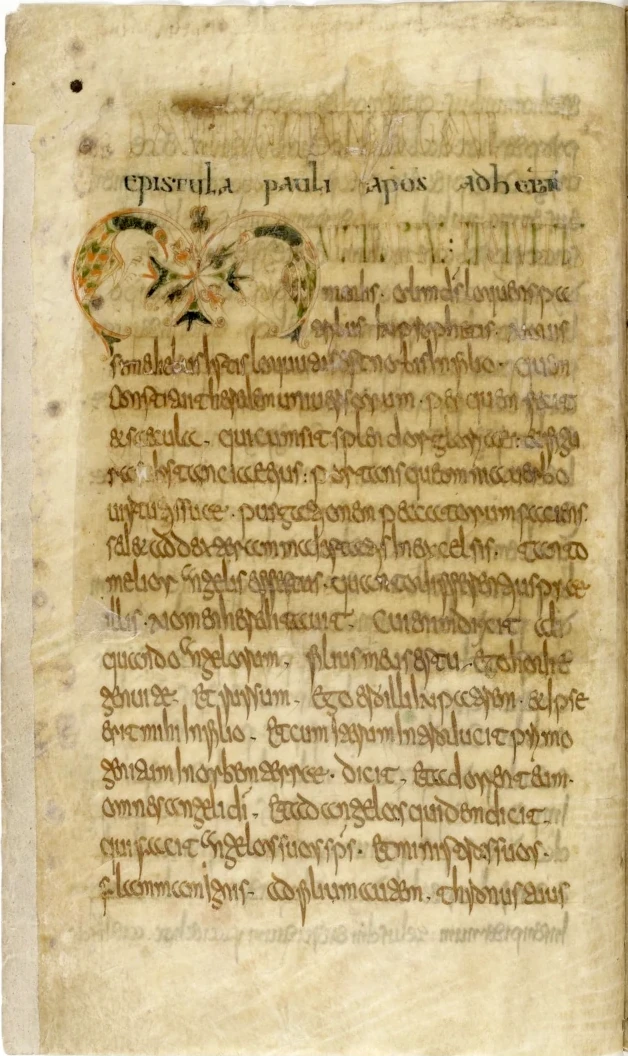 EPISTULA PAULI APOS AD HEBR
modis . olim ds loquens pa
tribus in prophetis . nouis
sime diebus istis locutus est nobis in filio . quem
constituit heredem uniuersorum . per quem fecit
et secula . qui cum sit splendor gloriae : et figu
ra substanciae eius : portansque omnia uerbo
uirtutis suae . purgationem peccatorum faciens .
sedet ad dexteram maiestatis in excelsis . tanto
melior angelis effectus . quanto differentius prae
illis . nomen hereditauit . Cui enim dixit ali
quando angelorum . filius meus es tu . ego hodie
genui te . Et rursum . Ego ero illi in patrem . et ipse
erit mihi in filio . Et cum iterum introducit primo
genitum in orbem terrae . dicit . Et adorent eum .
omnes angeli di . Et ad angelos quidem dicit .
qui facit angelos suos sps . Et ministros suos .
flammam ignis . ad filium autem . thronus tuus